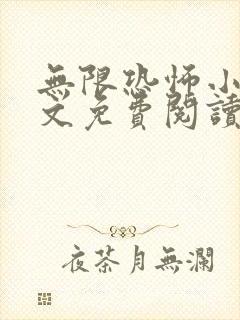 無限恐怖小
文免費閱讀
夜茶月無瀾